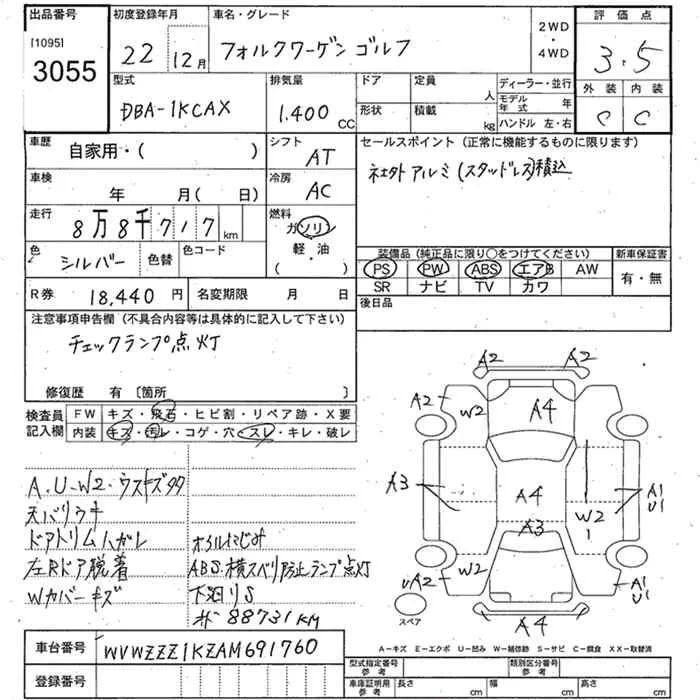 出品番号
[1095]
3055
初度登録年月
22 12月
車名・グレード
フォルクワーゲン ゴルフ
2WD
・
4WD
評価点
3.5
外装 内装
C C
型式
DBA-1KCAX
排気量
1.400 cc
ドア
定員 人
形状
積載 kg
ディーラー・並行
モデル年式 年
ハンドル 左・右
車歴
自家用・( )
シフト
AT
車検
年 月(日)
冷房
AC
走行
8万8千717km
燃料
ガソリン
軽・油
( )
色
シルバー
色替
色コード
R券 18,440円
名変期限 月 日
セールスポイント (正常に機能するものに限ります)
社外アルミ(スタッドレス)積込
装備品(純正品に限り〇をつけてください)
PS PW ABS エアB AW
SR ナビ TV カワ
新車保証書
有・無
後日品
注意事項申告欄(不具合内容等は具体的に記入して下さい)
チェックランプ点灯
修復歴 有〔箇所 〕
検査員記入欄
FW キズ・飛石・ヒビ割・リペア跡・X要
内装 キズ・汚レ・コゲ・穴・スレ・キレ・破レ
A.U-W2.ウスキズ多
天バリウチ
ドアトリムハガレ
左Rドア脱着
Wカバーキズ
オイルにじみ
ABS.横スベリ防止ランプ点灯
下廻りS
88731KM
A2 A2
A2 W2 A4
A3 A4 A1 U1
A3 W2 1
UA2 W2 A1 U1
A4
スペア
A-キズ E-エクボ U-凹み W-補修跡 S-サビ C-腐食 XX-取替済
車台番号
WVWZZZ1KZAM691760
登録番号
型式指定番号 参考
類別区分番号 参考
車庫証明用 参考
長さ cm
幅 cm
高さ cm